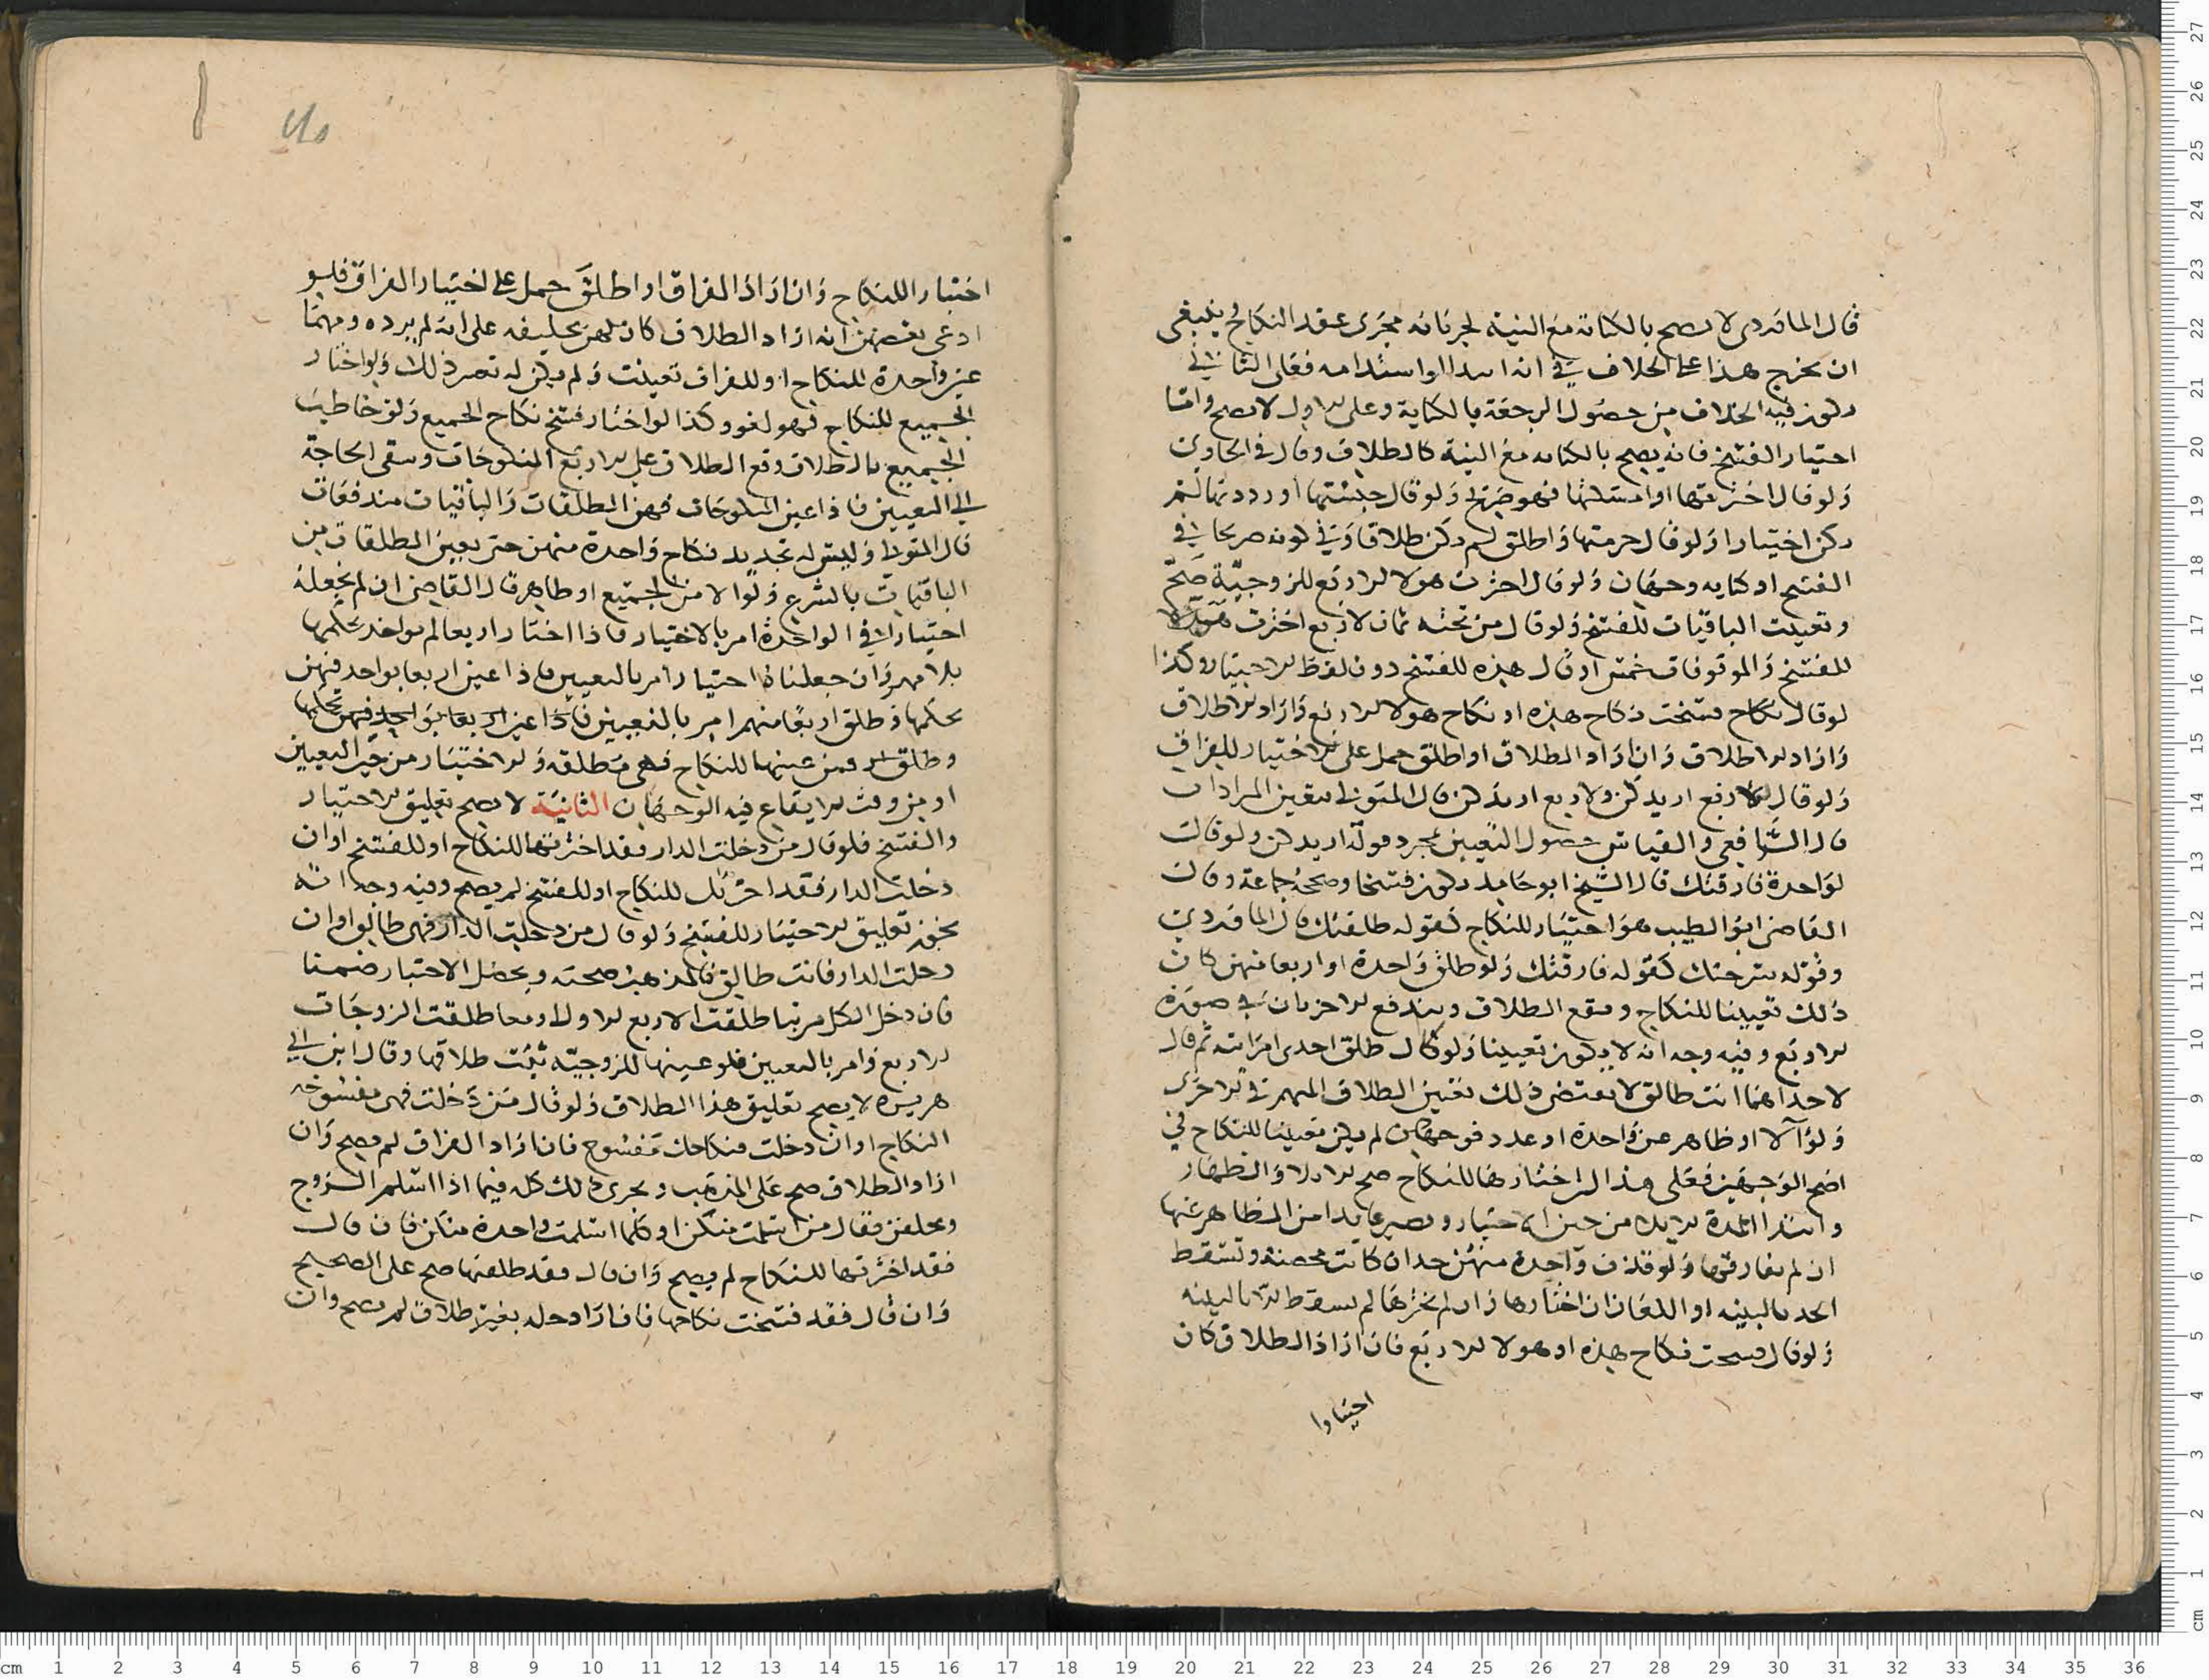 قال الماوردى لا يصح بالكناية مع النية لجريانه مجرى عقد النكاح وينبغى
ان يخرج هذا على الخلاف في انه ابتدا او استدامه فعلى الثاني
يكون فيه الخلاف من حصول الرجعة بالكناية وعلى الاول لا يصح واما
اختيار الفسخ فانه يصح بالكنايه مع النية كالطلاق وقال في الحاوى
ولو قال اخترتها او امسكتها فهو صريح ولو قال حبستها او رددتها لم
يكن اختيارا ولو قال حرمتها واطلق لم يكن طلاقا وفي كونه صريحا في
الفسخ او كنايه وجهان ولو قال اخترت هولا الاربع للزوجية صح
وتعينت الباقيات للفسخ ولو قال من تحته ثمان لاربع اخترت هولا
للفسخ والموقوفات خمس او قال هذه للفسخ دون لفظ الاختيار وكذا
لو قال نكاح فسخت نكاح هذه او نكاح هولا الاربع واراد الاطلاق
واراد الاطلاق وان اراد الطلاق او اطلق حمل على الاختيار للفراق
ولو قال لاربع اريدكن ولاربع اريدكن قال المتولى يتعين المرادات
قال الشافعي والقياس حصول التعيين بمجرد قوله اريدكن ولو قالت
لواحدة فارقتك قال الشيخ ابو حامد يكون فسخا وصححه جماعة وقال
القاضى ابو الطيب هو اختيار للنكاح كقوله طلقتك قال الماوردي
وقوله سرحتك كقوله فارقتك ولو طلق واحدة او اربعا منهن كان
ذلك تعيينا للنكاح ويقع الطلاق ويندفع الاخريات في صورة
الاربع وفيه وجه انه لا يكون تعيينا ولو قال طلق احدى امراته ثم قال
لاحداهما انت طالق لا يقتضى ذلك تعيين الطلاق المبهم في الاخرى
ولو آلا او ظاهر عن واحدة او عدد فوجهان لم يكن تعيينا للنكاح في
اصح الوجهين فعلى هذا ان اختارها للنكاح صح الايلا والظهار
وابتدا المدة الايلا من حين الاختيار ويصير عايدا من المظاهر عنها
ان لم يفارقها ولو قذف واحدة منهن حد ان كانت محصنة ويسقط
الحد بالبينه او اللعان ان اختارها وان لم يخترها لم يسقط الا بالبينه
ولو قال فسخت نكاح هذه او هولا الاربع فان اراد الطلاق كان
اختيارا
اختيار اللنكاح وان اراد الفراق او اطلق حمل على اختيار الفراق فلو
ادعى بعضهن انه اراد الطلاق كان لهن تحليفه على انه لم يرده ومهما
عين واحدة للنكاح او للفراق تعينت ولم يكن له تغير ذلك ولو اختار
الجميع للنكاح فهو لغو وكذا لو اختار فسخ نكاح الجميع ولو خاطب
الجميع بالطلاق وقع الطلاق على الاربع المنكوحات وتبقى الحاجة
الي التعيين فاذا عين المنكوحات فهن المطلقات والباقيات مندفعات
قال المتولى وليس له تجديد نكاح واحدة منهن حتى يعين المطلقات من
الباقيات بالشرع ولو الا من الجميع او ظاهر قال القاضى ان لم نجعله
اختيارا في الواحدة امر بالاختيار فاذا اختار اربعا لم يواخذ بحكمها
بلا مهر وان جعلناه اختيارا امر بالتعيين فاذا عين اربعا يواحد فيهن
بحكمها وطلق اربعا منهم امر بالتعيين فاذا عين اربعا يواخذ فيهن بحكمها
وطلق فمن عينها للنكاح فهى مطلقه والاختيار من حين التعيين
او من وقت الايقاع فيه الوجهان الثانية لا يصح تعليق الاختيار
والفسخ فلو قال من دخلت الدار فقد اخترتها للنكاح او للفسخ او ان
دخلت الدار فقد اخترتك للنكاح او للفسخ لم يصح وفيه وجه انه
يجوز تعليق الاختيار للفسخ ولو قال من دخلت الدار فهى طالق او ان
دخلت الدار فانت طالق فالمذهب صحته ويحصل الاختيار ضمنا
فان دخل الكل مرتبا طلقت الاربع الاول او معا طلقت الزوجات
الاربع وامر بالتعيين فلو عينها للزوجيه ثبت طلاقها وقال ابن ابي
هريره لا يصح تعليق هذا الطلاق ولو قال من دخلت فهى مفسوخه
النكاح او ان دخلت فنكاحك مفسوخ فان اراد الفراق لم يصح وان
اراد الطلاق صح على المذهب ويجرى ذلك كله فيما اذا اسلم الزوج
وتخلفن فقال من اسلمت منكن او كلما اسلمت واحدة منكن فان قال
فقد اخترتها للنكاح لم يصح وان قال فقد طلقتها صح على الصحيح
وان قال فقد فسخت نكاحها فان اراد حله بغير طلاق لم يصح وان